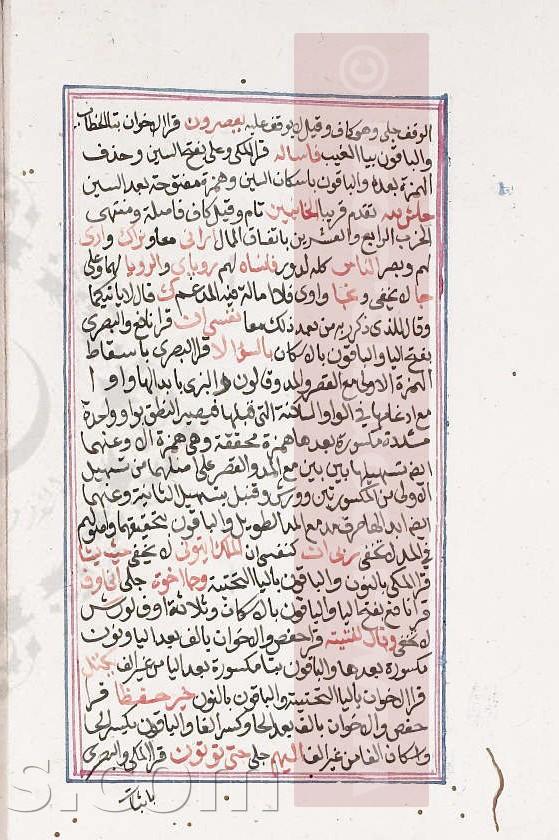 الوقف جلي وهو كاف وقيل لا يوقف عليه يعصرون قرا الاخوان بتا الخطاب
والباقون بيا الغيب فاساله قرا المكي وعلي بفتح السين وحذف
الهمزة بعده والباقون باسكان السين وهمزة مفتوحة بعد السين
حاش لله تقدم قريبا الخاينين تام وقيل كاف فاصلة ومنتهى
الحزب الرابع والعشرين باتفاق الممال اراني معا ونراك وارى
لهم وبصر الناس كله لدور فانساه لهم روياي والرويا لهما وعلي
جا لا يخفى ونجا واوي فلا امالة فيه المدغم ك قال لا ياتيكما
وقال للذي ذكر ربه من بعد ذلك معا نفسي ان قرا نافع والبصري
بفتح اليا والباقون بالاسكان بالسؤ الا قرا البصري باسقاط
الهمزة الاولى مع القصر والمد وقالون والبزي بابدالها واوا
مع ادغامها في الواو الساكنة التي قبلها فيصير النطق بواو واحدة
مشددة مكسورة بعدها همزة محققة وهي همزة الا وعنهما
ايضا تسهيلها بين بين مع المد والقصر على اصلهما من تسهيل
الاولى من المكسورتين وورش وقنبل بتسهيل الثانية وعنهما
ايضا ابدالها حرف مد مع المد الطويل والباقون بتحقيقهما واصولهم
في المد لا تخفى ربي ان كنفسي ان الملك ايتوني لا يخفى حيث يشا
قرا المكي بالنون والباقون باليا التحتية وجا اخوة جلي اني اوف
قرا نافع بفتح اليا والباقون بالاسكان وثلاثة اوف لورش
لا تخفى وقال لفتيته قرا حفص والاخوان بالف بعد اليا ونون
مكسورة بعدها والباقون بتا مكسورة بعد اليا من غير الف يكتل
قرا الاخوان باليا التحتية والباقون بالنون خير حفظا قرا
حفص والاخوان بالف بعد الحا وكسر الفا والباقون بكسر الحا
واسكان الفا من غير الف اليهم جلي حتى توتون قرا المكي والبصري
s.com